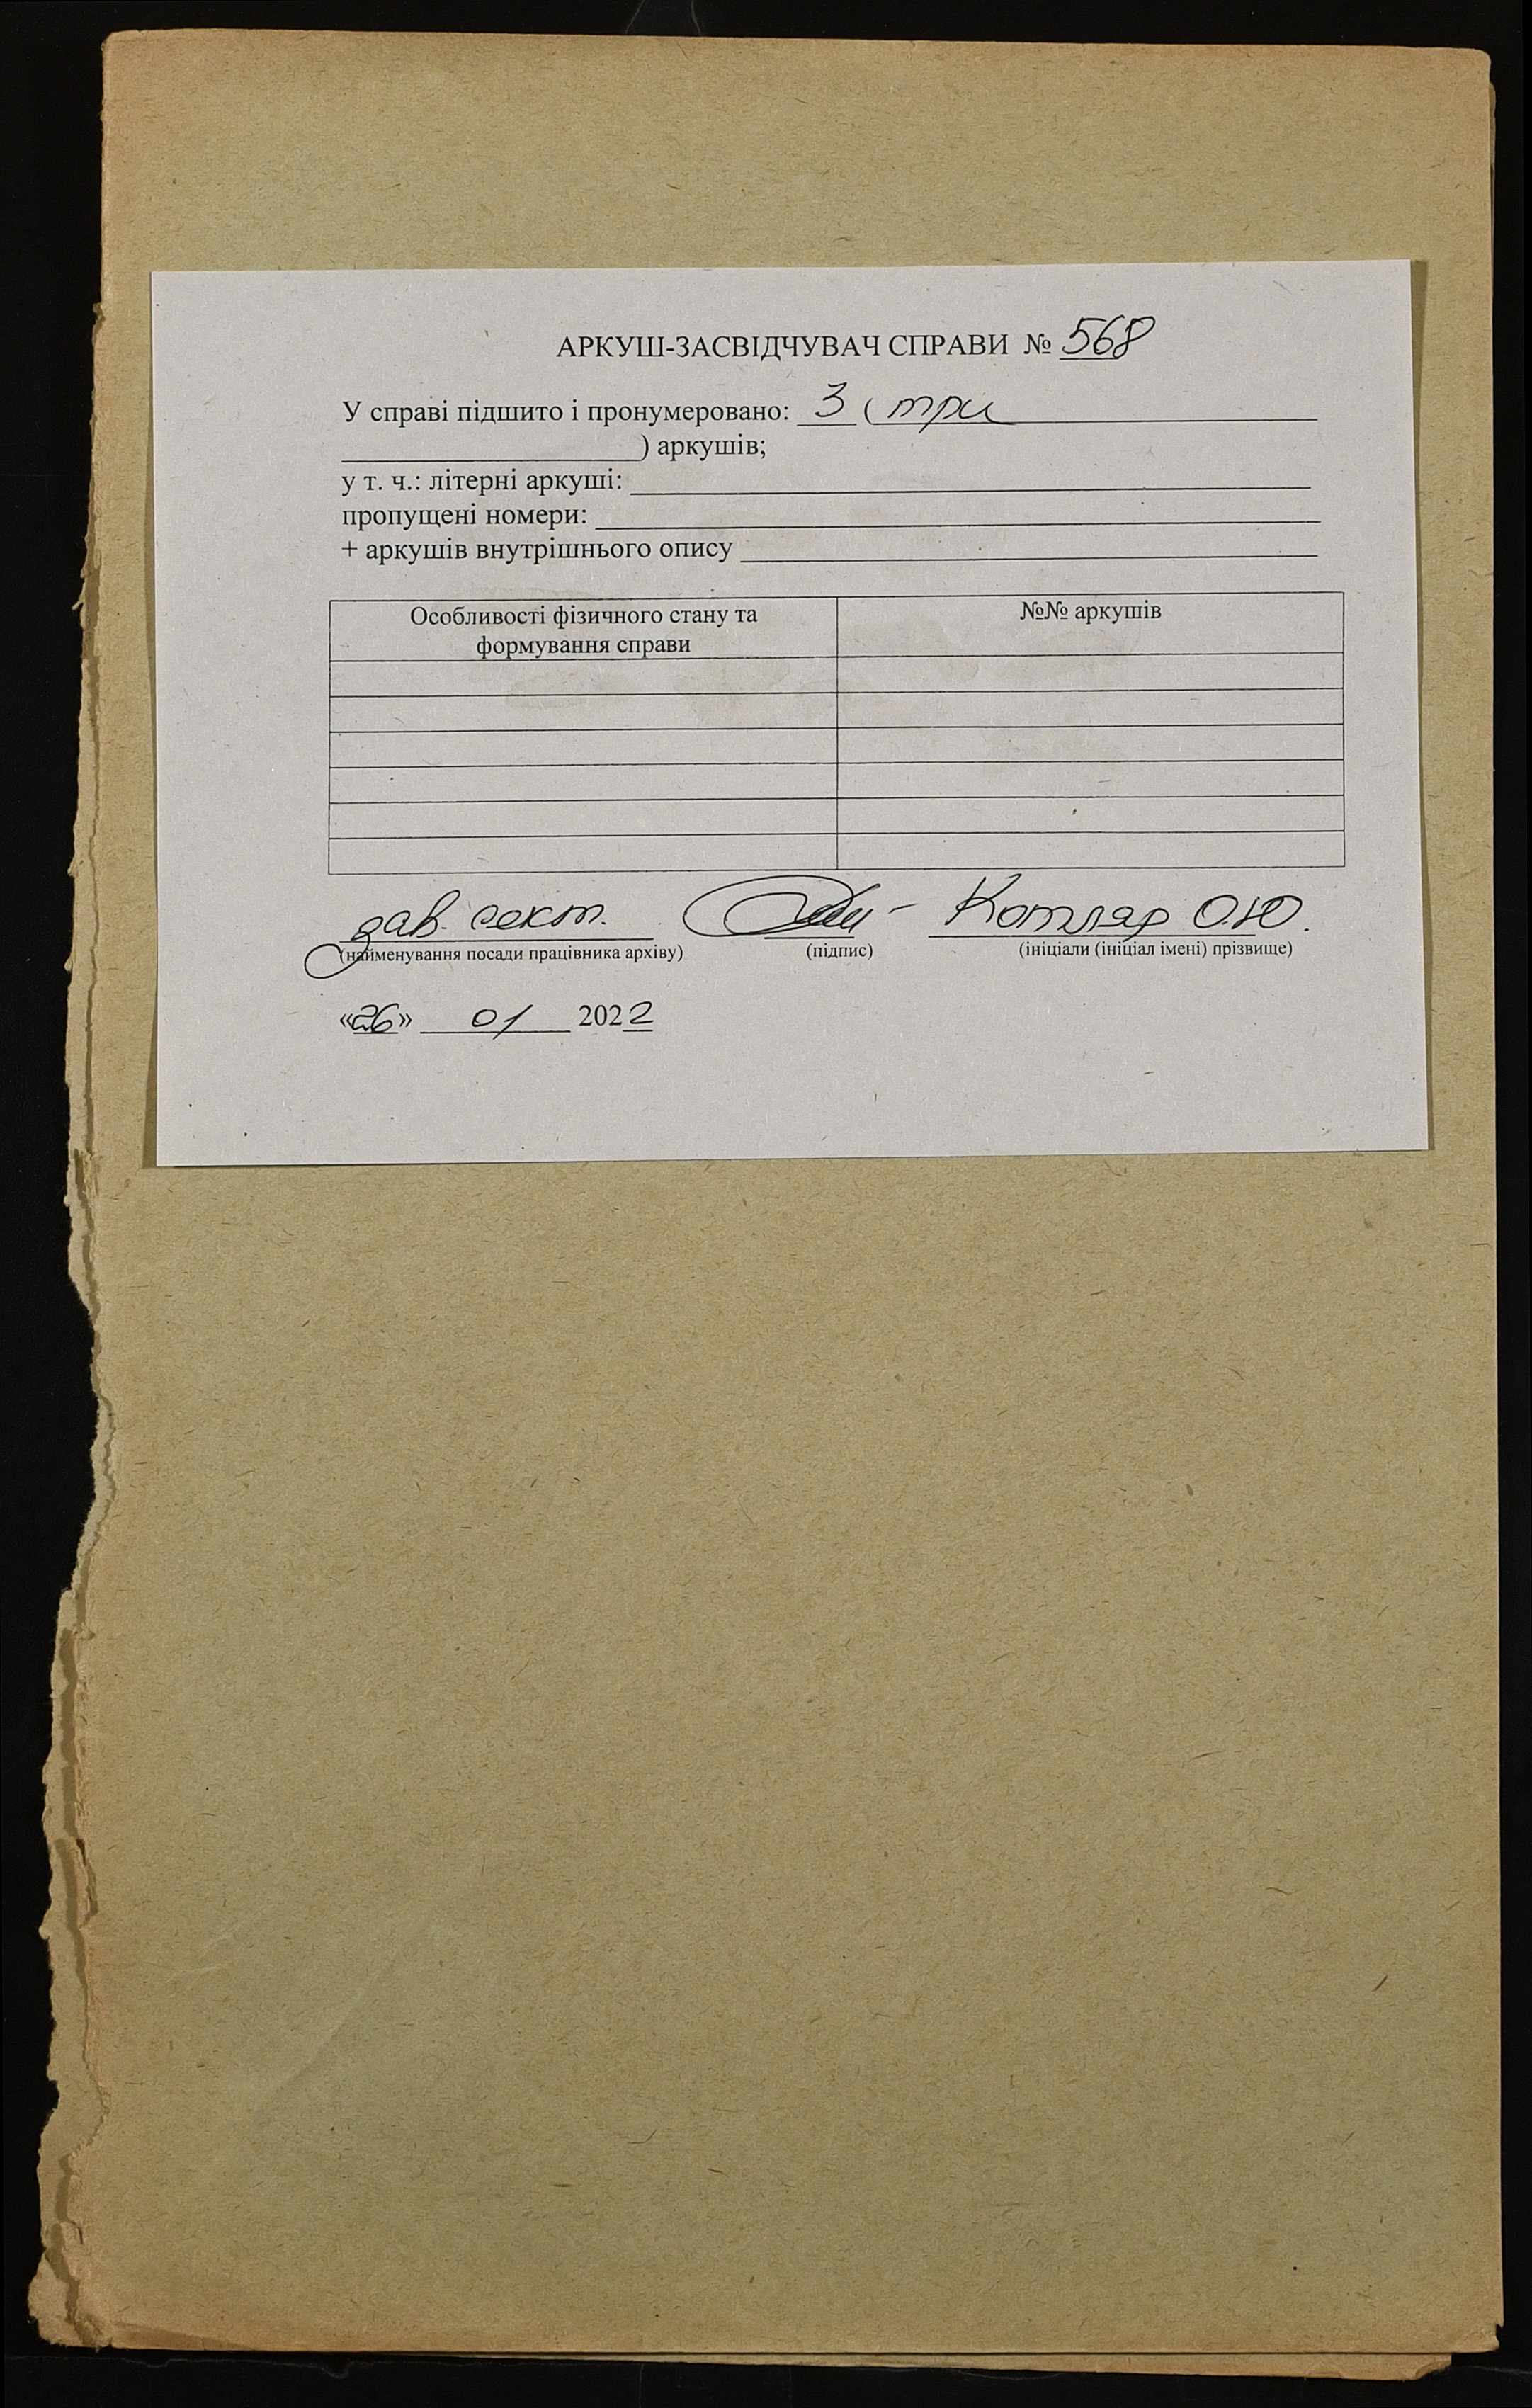 АРКУШ-ЗАСВІДЧУВАЧ СПРАВИ № 568
У справі підшито і пронумеровано: 3 ( три
) аркушів;
у т. ч.: літерні аркуші:
пропущені номери:
+ аркушів внутрішнього опису
Особливості фізичного стану та
формування справи
№№ аркушів
зав. сект. Котляр О.Ю.
(найменування посади працівника архіву) (підпис) (ініціали (ініціал імені) прізвище)
«26» 01 2022